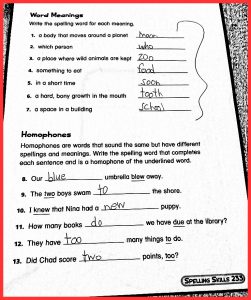 Word Meanings
Write the spelling word for each meaning.
1. a body that moves around a planet moon
2. which person who
3. a place where wild animals are kept zoo
4. something to eat food
5. in a short time soon
6. a hard, bony growth in the mouth tooth
7. a space in a building school
Homophones
Homophones are words that sound the same but have different
spellings and meanings. Write the spelling word that completes
each sentence and is a homophone of the underlined word.
8. Our blue umbrella blew away.
9. The two boys swam to the shore.
10. I knew that Nina had a new puppy.
11. How many books do we have due at the library?
12. They have too many things to do.
13. Did Chad score two points, too?
SPELLING SKILLS 233